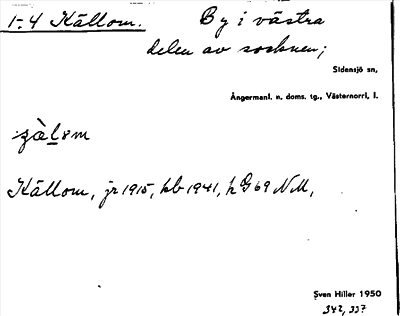 1-4 Källom. By i västra
delen av socknen;
Sidensjö sn,
Ångermanl. n. doms. tg., Västernorrl. l.
Källom, jr 1915, kb 1941, k G 69 NM,
Sven Hiller 1950
342, 337